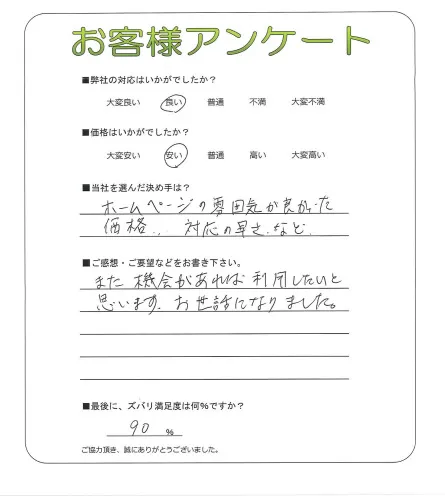 お客様アンケート
■弊社の対応はいかがでしたか？
大変良い 良い 普通 不満 大変不満
■価格はいかがでしたか？
大変安い 安い 普通 高い 大変高い
■当社を選んだ決め手は？
ホームページの雰囲気が良かった
価格、、対応の早さ、など、
■ご感想・ご要望などをお書き下さい。
また機会があれば利用したいと
思います。お世話になりました。
■最後に、ズバリ満足度は何%ですか？
90 %
ご協力頂き、誠にありがとうございました。